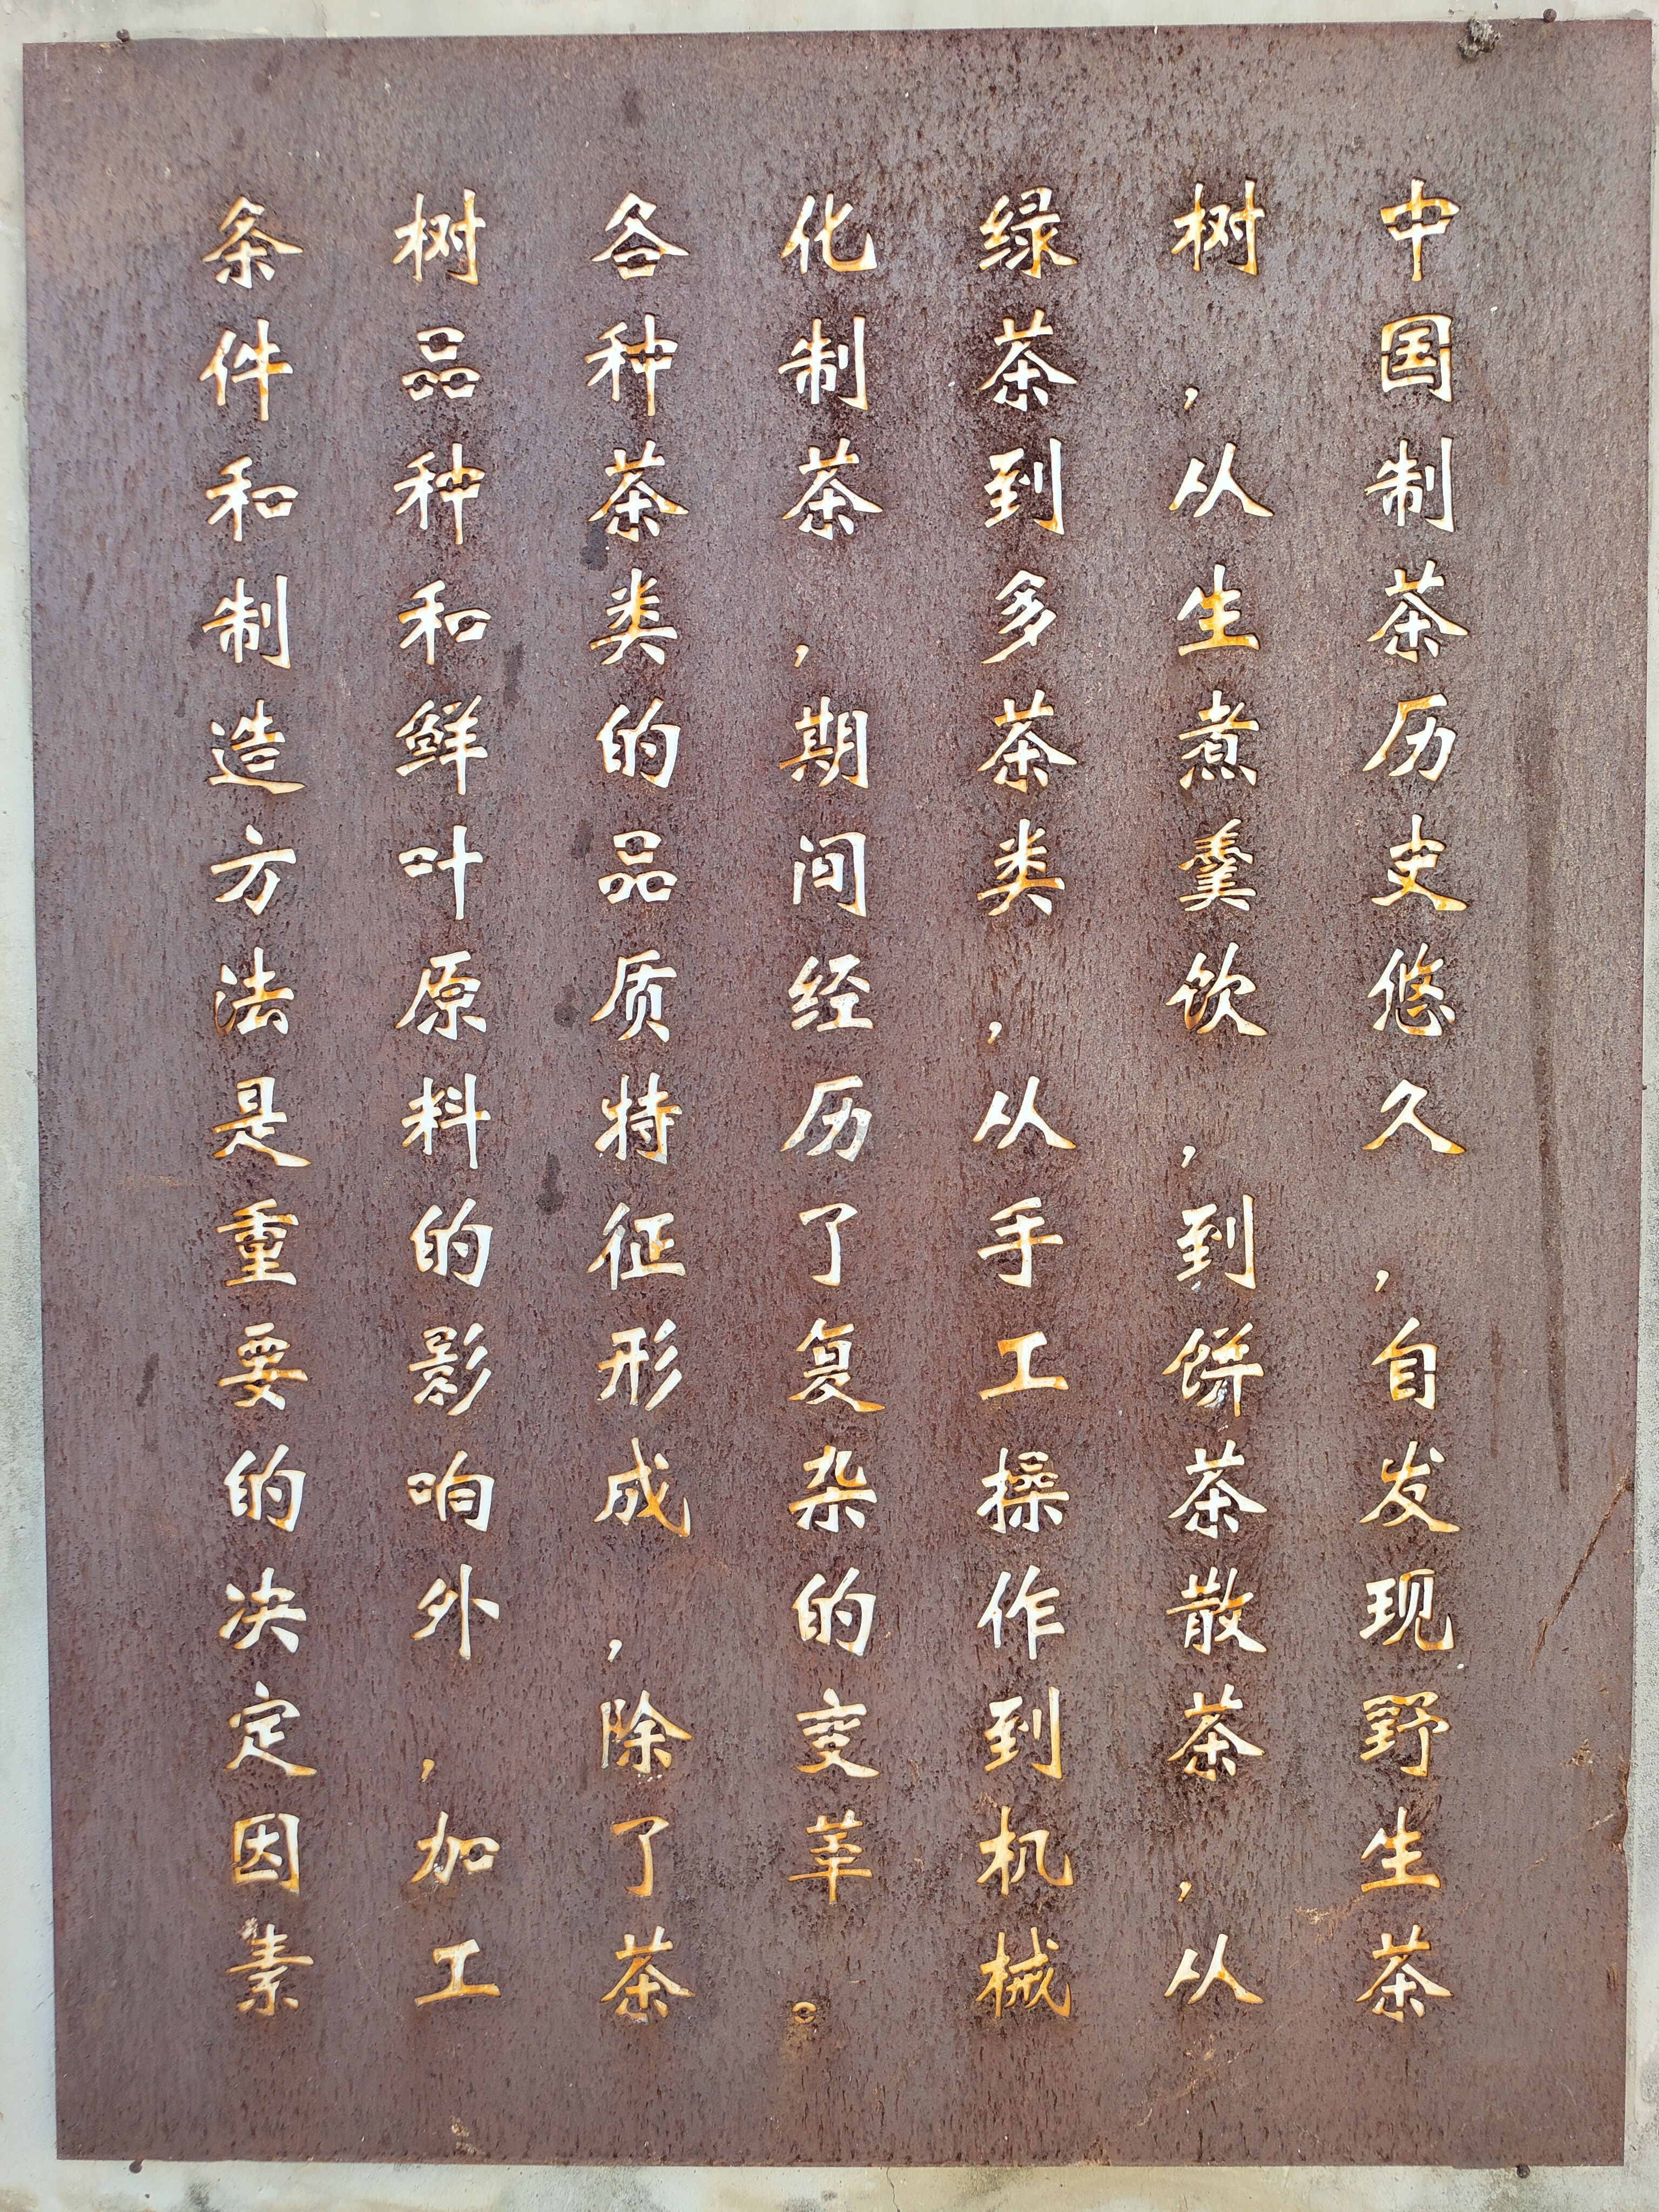 中国制茶历史悠久，自发现野生茶
树，从生煮羹饮，到饼茶散茶，从
绿茶到多茶类，从手工操作到机械
化制茶，期间经历了复杂的变革。
各种茶类的品质特征形成，除了茶
树品种和鲜叶原料的影响外，加工
条件和制造方法是重要的决定因素